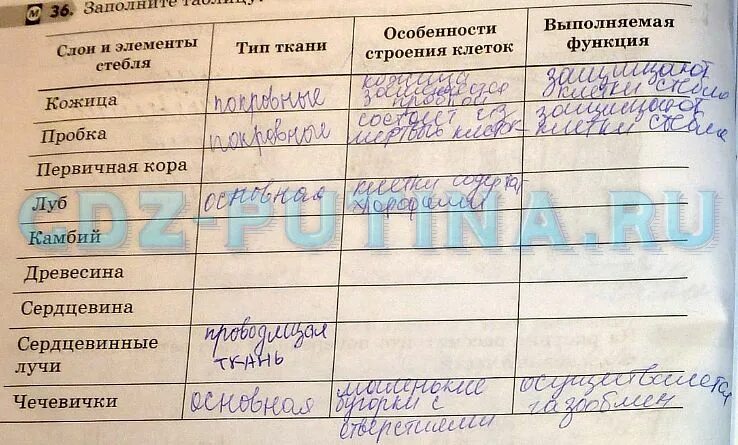 36. Заполните таблицу.
Слои и элементы стебля | Тип ткани | Особенности строения клеток | Выполняемая функция
Кожица | покровные | кожица заменяется пробкой | защищают клетки стебля
Пробка | покровные | состоит из мёртвых клеток | защищают клетки стебля
Первичная кора
Луб | основная | клетки содержат
Камбий
Древесина
Сердцевина
Сердцевинные лучи | проводящая ткань
Чечевички | основная | маленькие бугорки с отверстиями | осуществляется газообмен
GDZ-PUTINA.RU